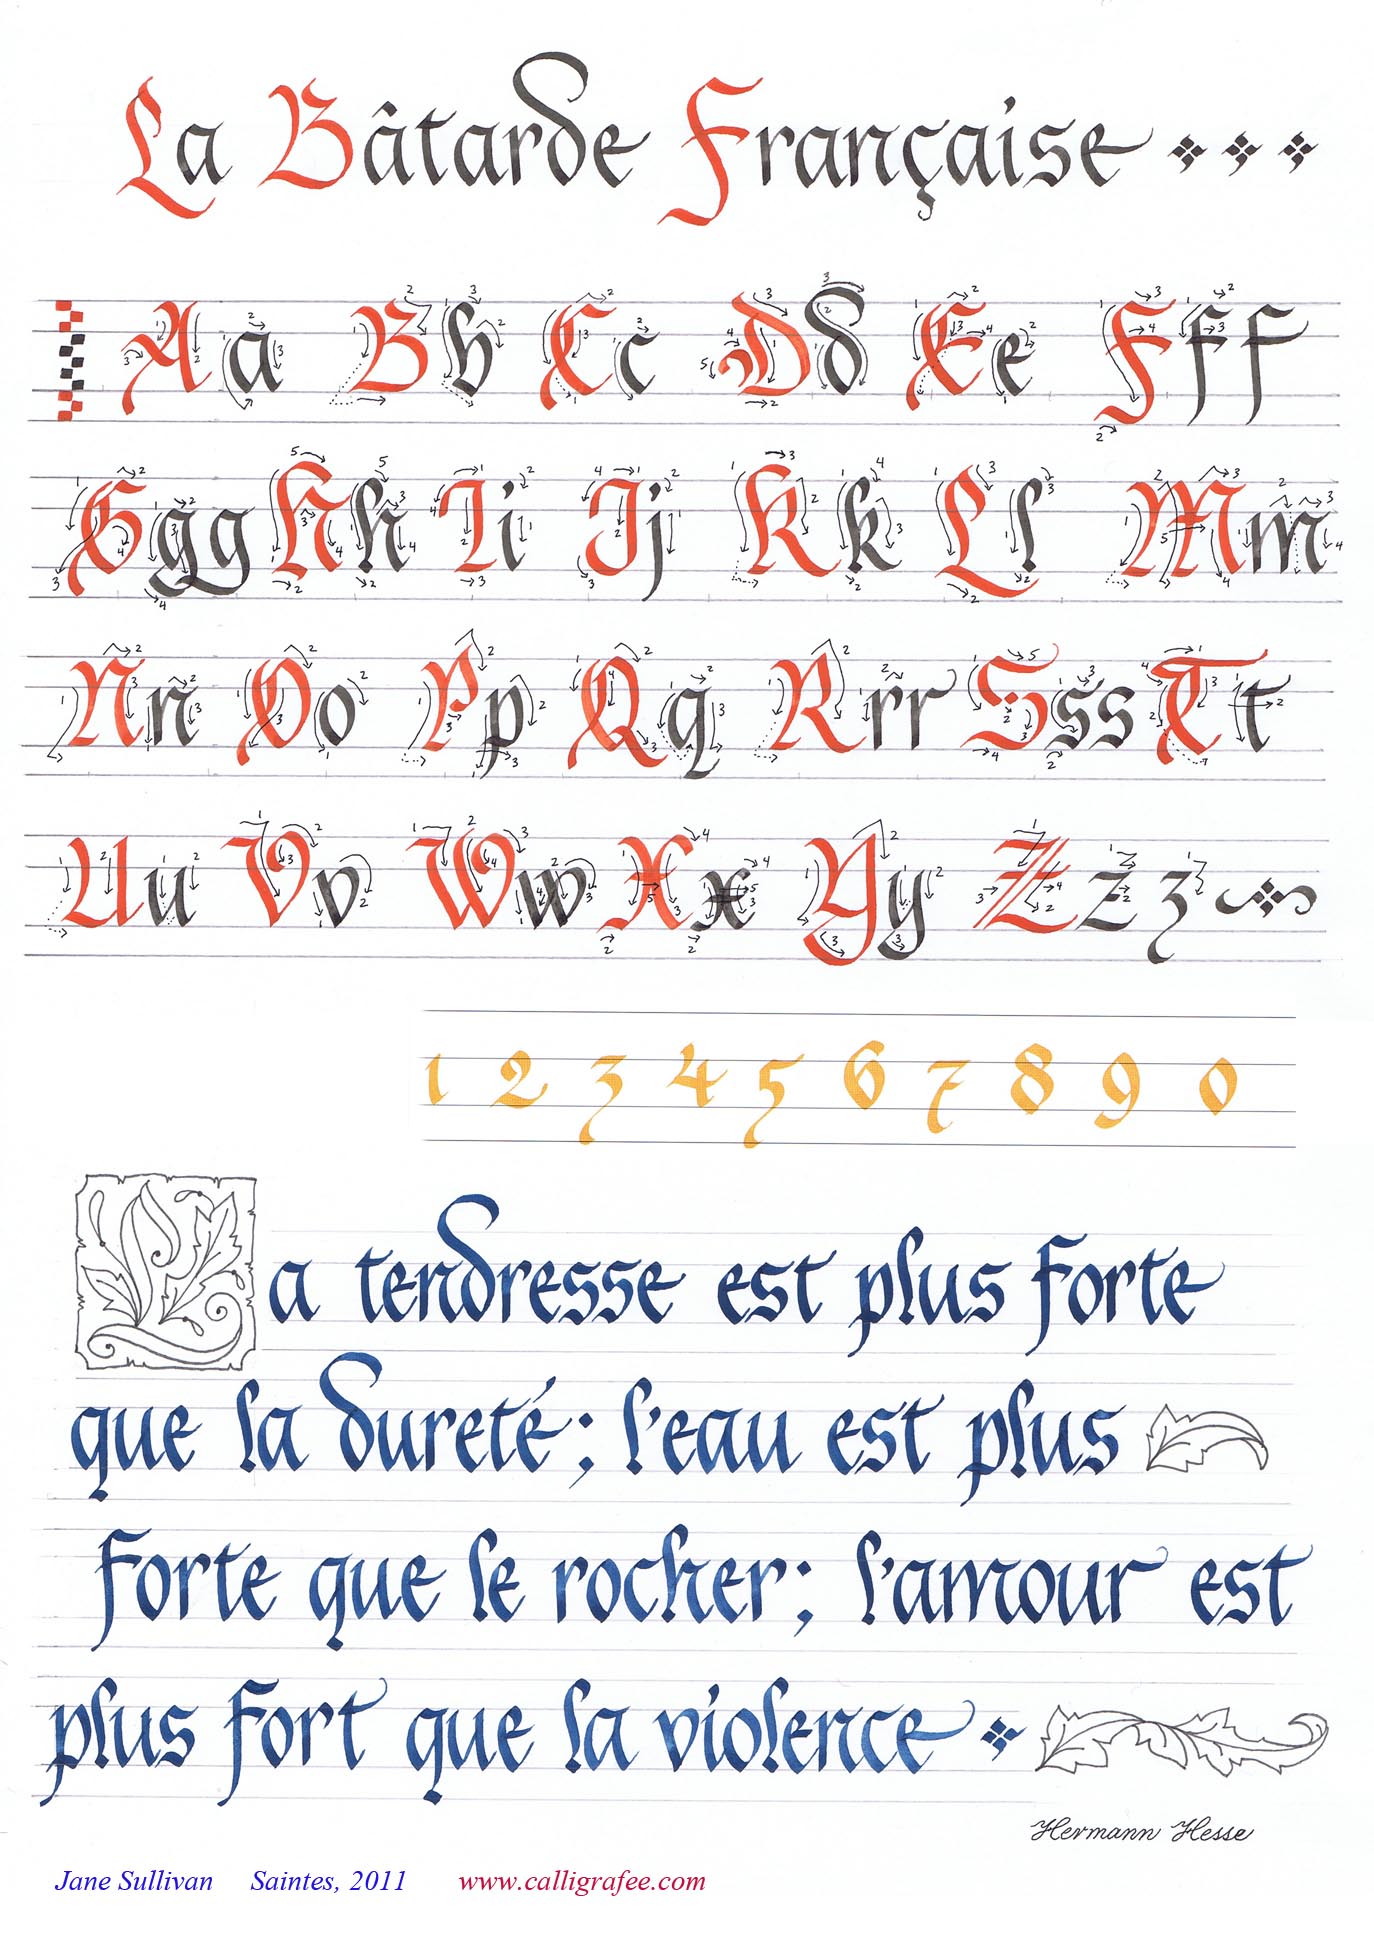 La Bâtarde Française
A a B b C c D d E e F f f
G g g H h I i J j K k L l M m
N n O o P p Q q R r r S s s T t
U u V v W w X x Y y Z z z
1 2 3 4 5 6 7 8 9 0
La tendresse est plus forte
que la dureté; l'eau est plus
forte que le rocher; l'amour est
plus fort que la violence
Hermann Hesse
Jane Sullivan Saintes, 2011 www.calligrafee.com